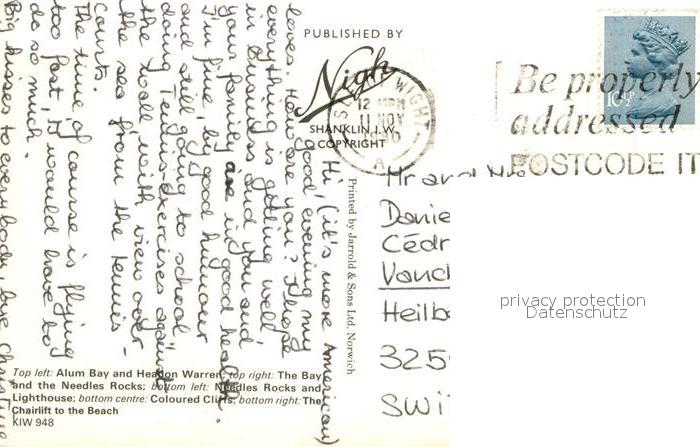 PUBLISHED BY
Nigh
SHANKLIN, I.W.
COPYRIGHT
WIGHT
12 PM
11 NOV
A
Be properly
addressed
POSTCODE IT
10½P
Hi, (it's more American)
good evening my
loves. How are you? I hope
everything is getting well
in business and you and
your family are in good health.
I'm fine, by good humour
and still going to school
doing Tennis-exercises against
the wall with view over
the sea from the tennis-
courts.
The time of course is flying
too fast, I would have to
do so much.
Big kisses to everybody, love Christine
Printed by Jarrold & Sons Ltd, Norwich
Mr and
Danie
Cédr
Vand
Heilb
325
SWi
privacy protection
Datenschutz
Top left: Alum Bay and Headon Warren; top right: The Bay
and the Needles Rocks; bottom left: Needles Rocks and
Lighthouse; bottom centre: Coloured Cliffs; bottom right: The
Chairlift to the Beach
KIW 948